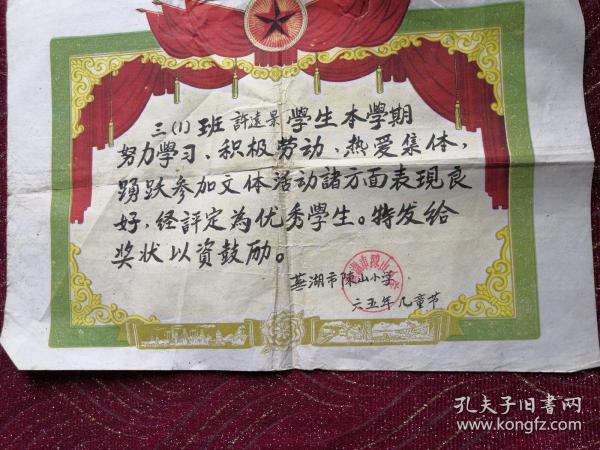 三(1)班許遠景學生本學期
努力學习、积极劳动、热爱集体,
踴跃参加文体活动諸方面表現良
好,经評定為优秀學生。特发给
奖状以资鼓励。
蕪湖市陳山小学
六五年儿童节
孔夫子旧書网
www.kongfz.com